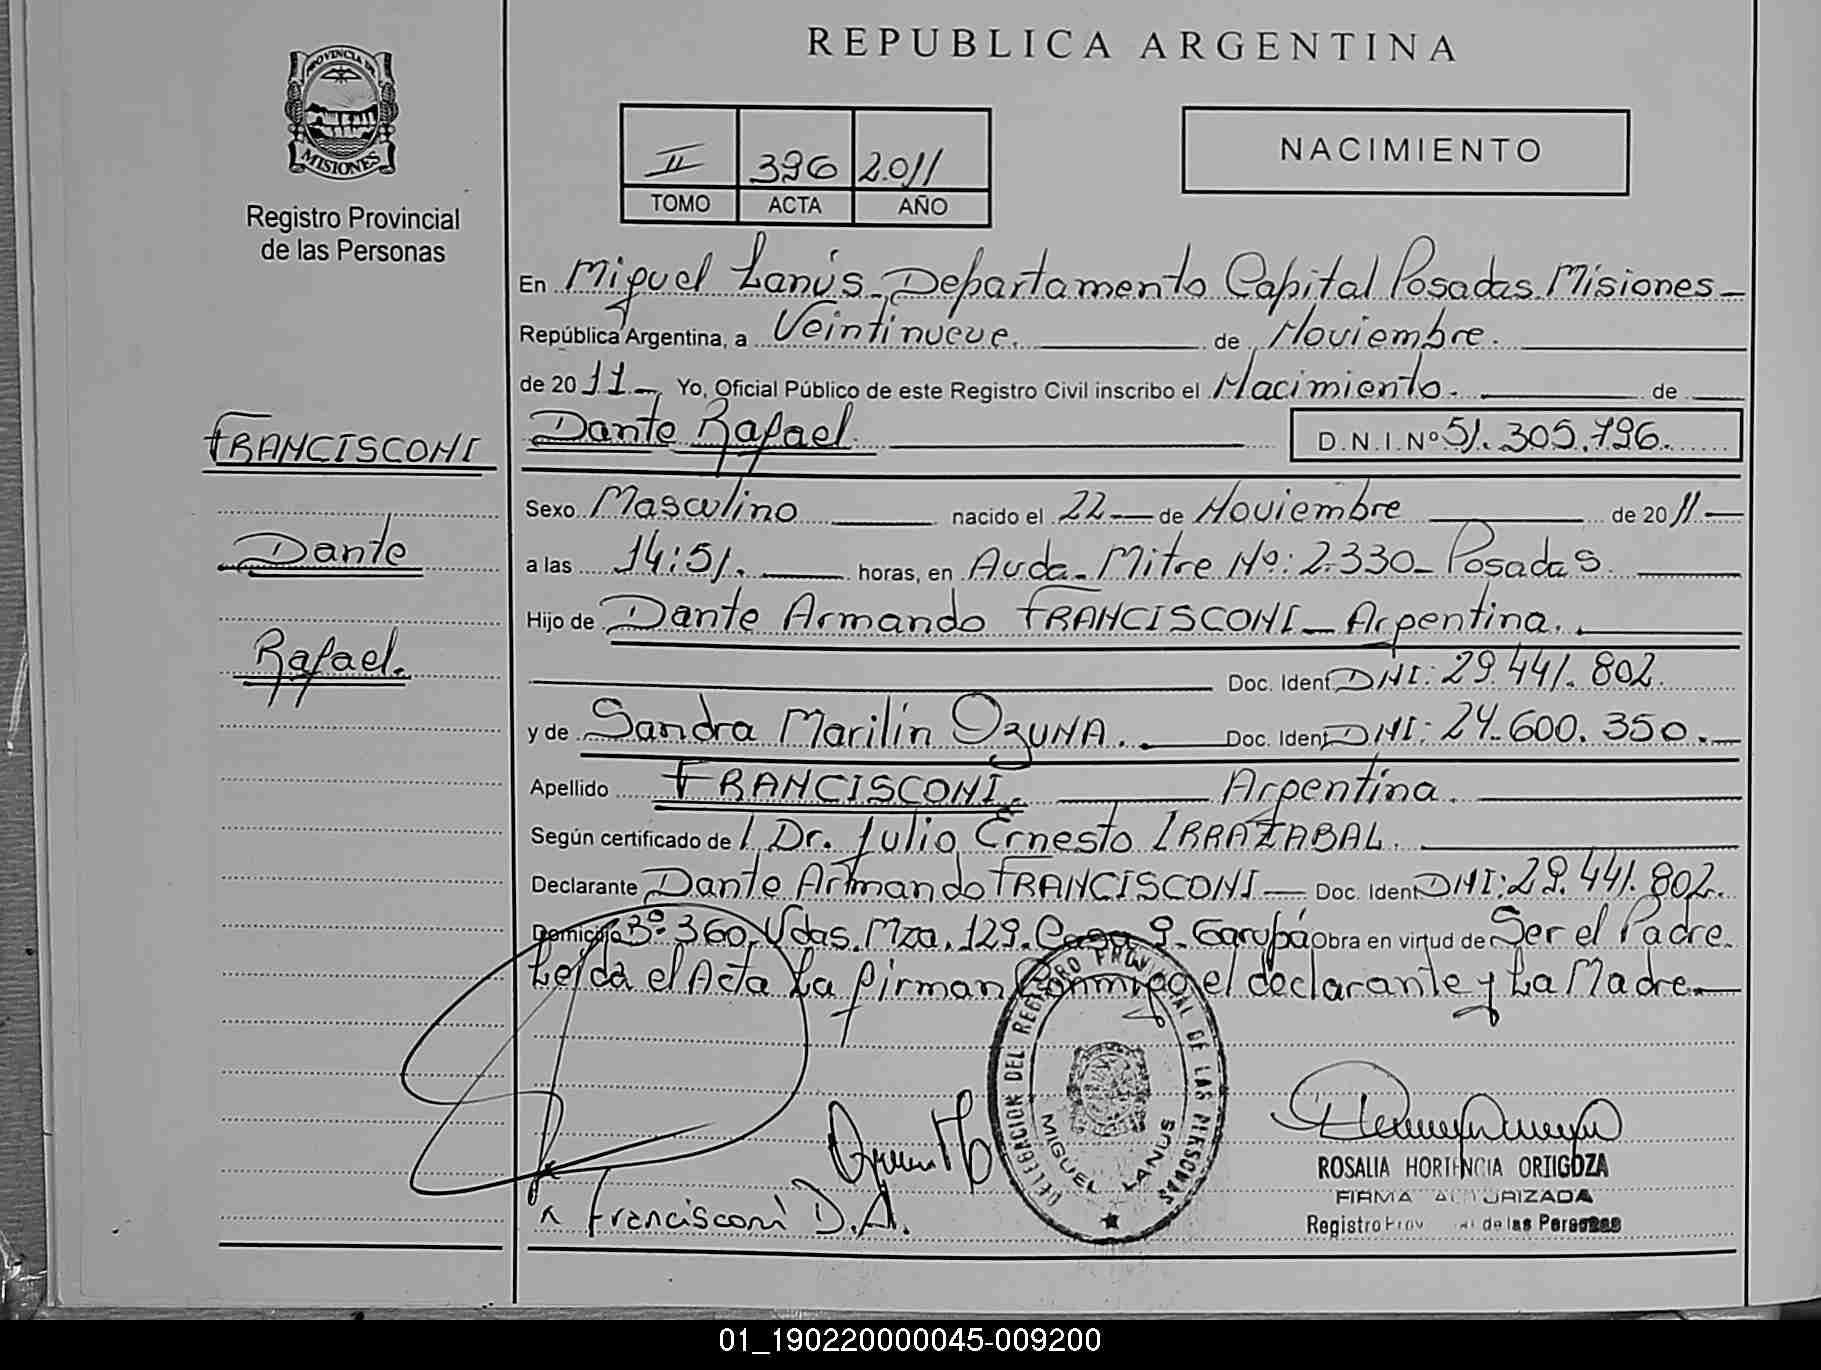 PROVINCIA DE
MISIONES
Registro Provincial
de las Personas
FRANCISCONI
Dante
Rafael.
REPUBLICA ARGENTINA
II 396 2.011
TOMO ACTA AÑO
NACIMIENTO
En Miguel Lanús - Departamento Capital Posadas Misiones -
República Argentina, a Veintinueve. de Noviembre.
de 20 11 - Yo, Oficial Público de este Registro Civil inscribo el Nacimiento. de
Dante Rafael. D.N.I. Nº 51.305.796.
Sexo Masculino nacido el 22 - de Noviembre de 20 11 -
a las 14:51. horas, en Avda. Mitre Nº: 2.330 - Posadas.
Hijo de Dante Armando FRANCISCONI - Argentina.
Doc. Ident DNI: 29.441.802.
y de Sandra Marilín OzUNA. Doc. Ident DNI: 24.600.350.
Apellido FRANCISCONI. Argentina.
Según certificado de / Dr. Julio Ernesto IRRAZABAL.
Declarante Dante Armando FRANCISCONI - Doc. Ident DNI: 29.441.802.
Domicilio Bº 360 Vdas. Mza. 129. Casa 9. Garupá Obra en virtud de Ser el Padre.
Leída el Acta La firman Conmigo el declarante y La Madre.
DELEGACION DEL REGISTRO PROVINCIAL DE LAS PERSONAS
MIGUEL LANUS
Francisconi D.A.
ROSALIA HORTENCIA ORTIGOZA
FIRMA AUTORIZADA
Registro Prov al de las Personas
01_190220000045-009200